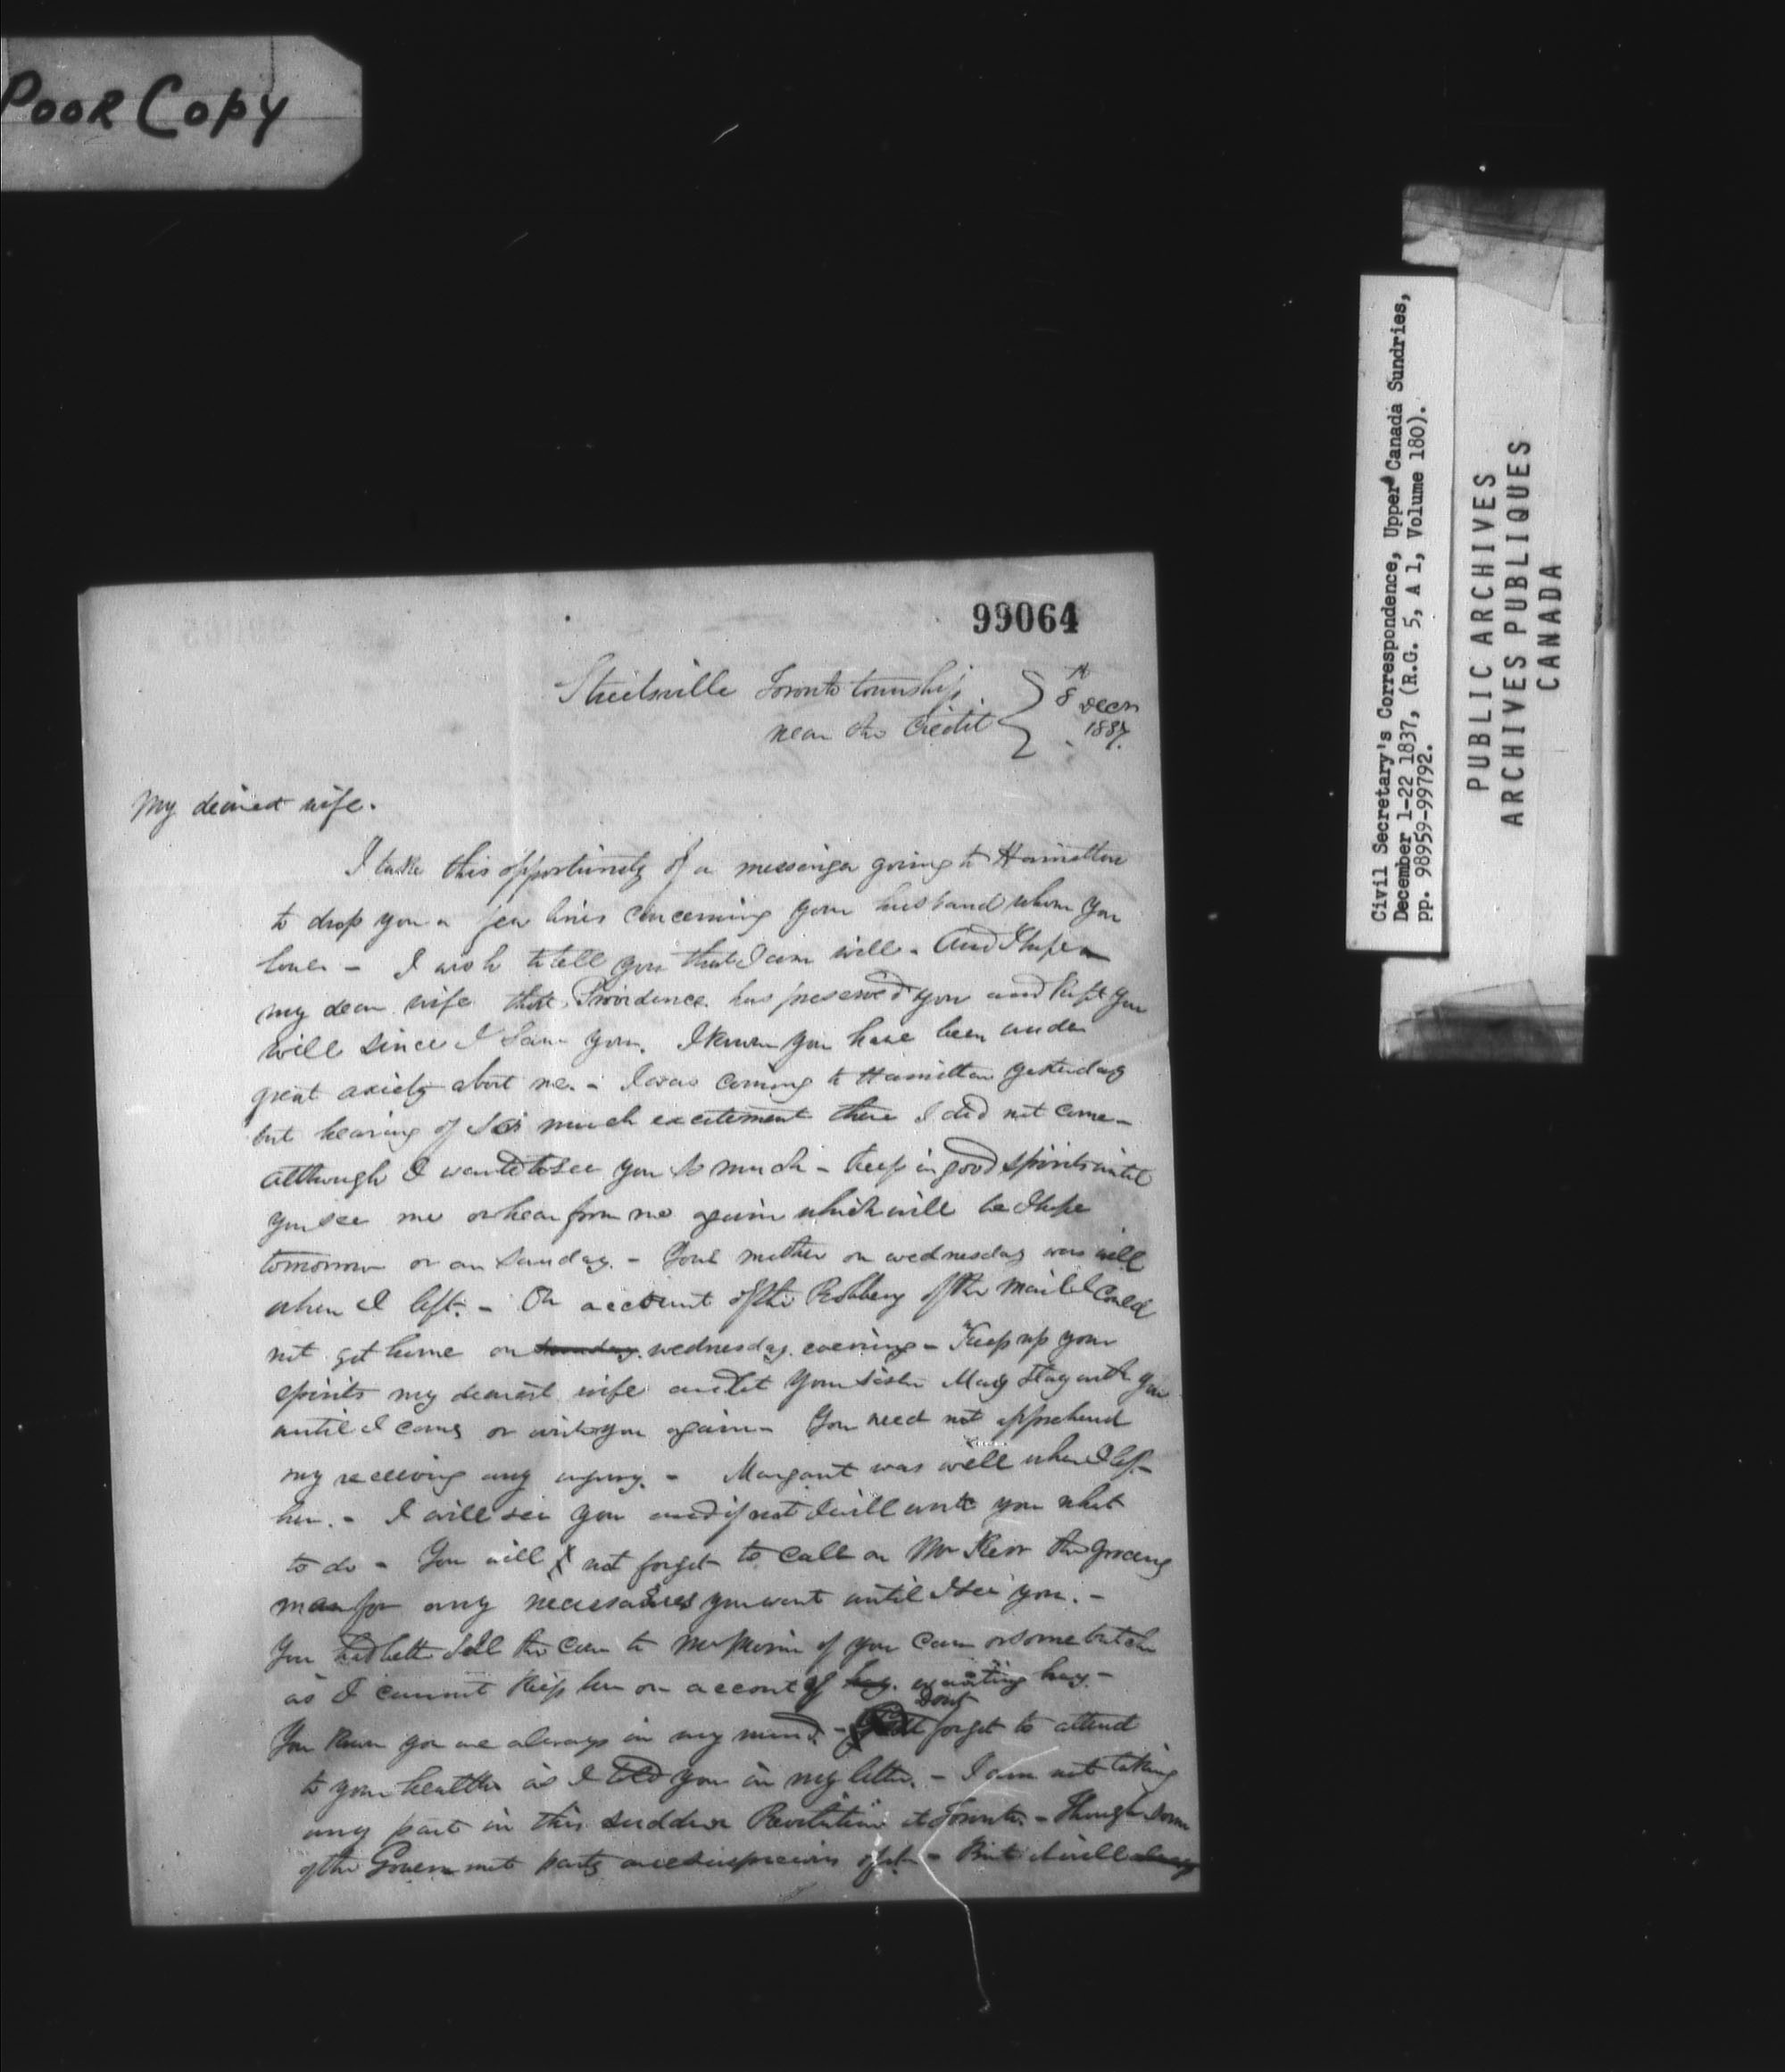 POOR COPY
99064
Streetsville Toronto township
near the Credit } 8th Decr 1837.
My dearest wife.
I take this opportunity of a messenger going to Hamilton
to drop you a few lines concerning your husband whom you
love - I wish to tell you that I am well - And I hope
my dear wife that Providence has preserved you and kept you
well since I saw you. I know you have been under
great axiety about me. - I was coming to Hamilton yesterday
but hearing of so much excitement there I did not come -
although I wanted to see you so much - keep in good spirits until
you see me or hear from me again which will be I hope
tomorrow or on Sunday. - Your mother on wednesday was well
when I left. - On account of the Robbery of the mail I could
not get home on wednesday evening - Keep up your
spirits my dearest wife and let your sister Mary stay with you
until I come or write you again - You need not apprehend
my receiving any injury. - Margaret was well when I left
her. - I will see you and if not I will write you what
to do - You will not forget to call on Mr Kerr the grocery
man for any necessaries you want until I see you. -
You had better sell the cow to Mr if you can or some butcher
as I cannot keep her on account of hay. wanting hay -
You know you are always in my mind. - Dont forget to attend
to your health as I told you in my letter. - I am not taking
any part in this sudden Revolution at Toronto. - Though some
of the Government party are suspicious of it - But I will always
Civil Secretary's Correspondence, Upper Canada Sundries,
December 1-22 1837, (R.G. 5, A 1, Volume 180).
pp. 98959-99792.
PUBLIC ARCHIVES
ARCHIVES PUBLIQUES
CANADA